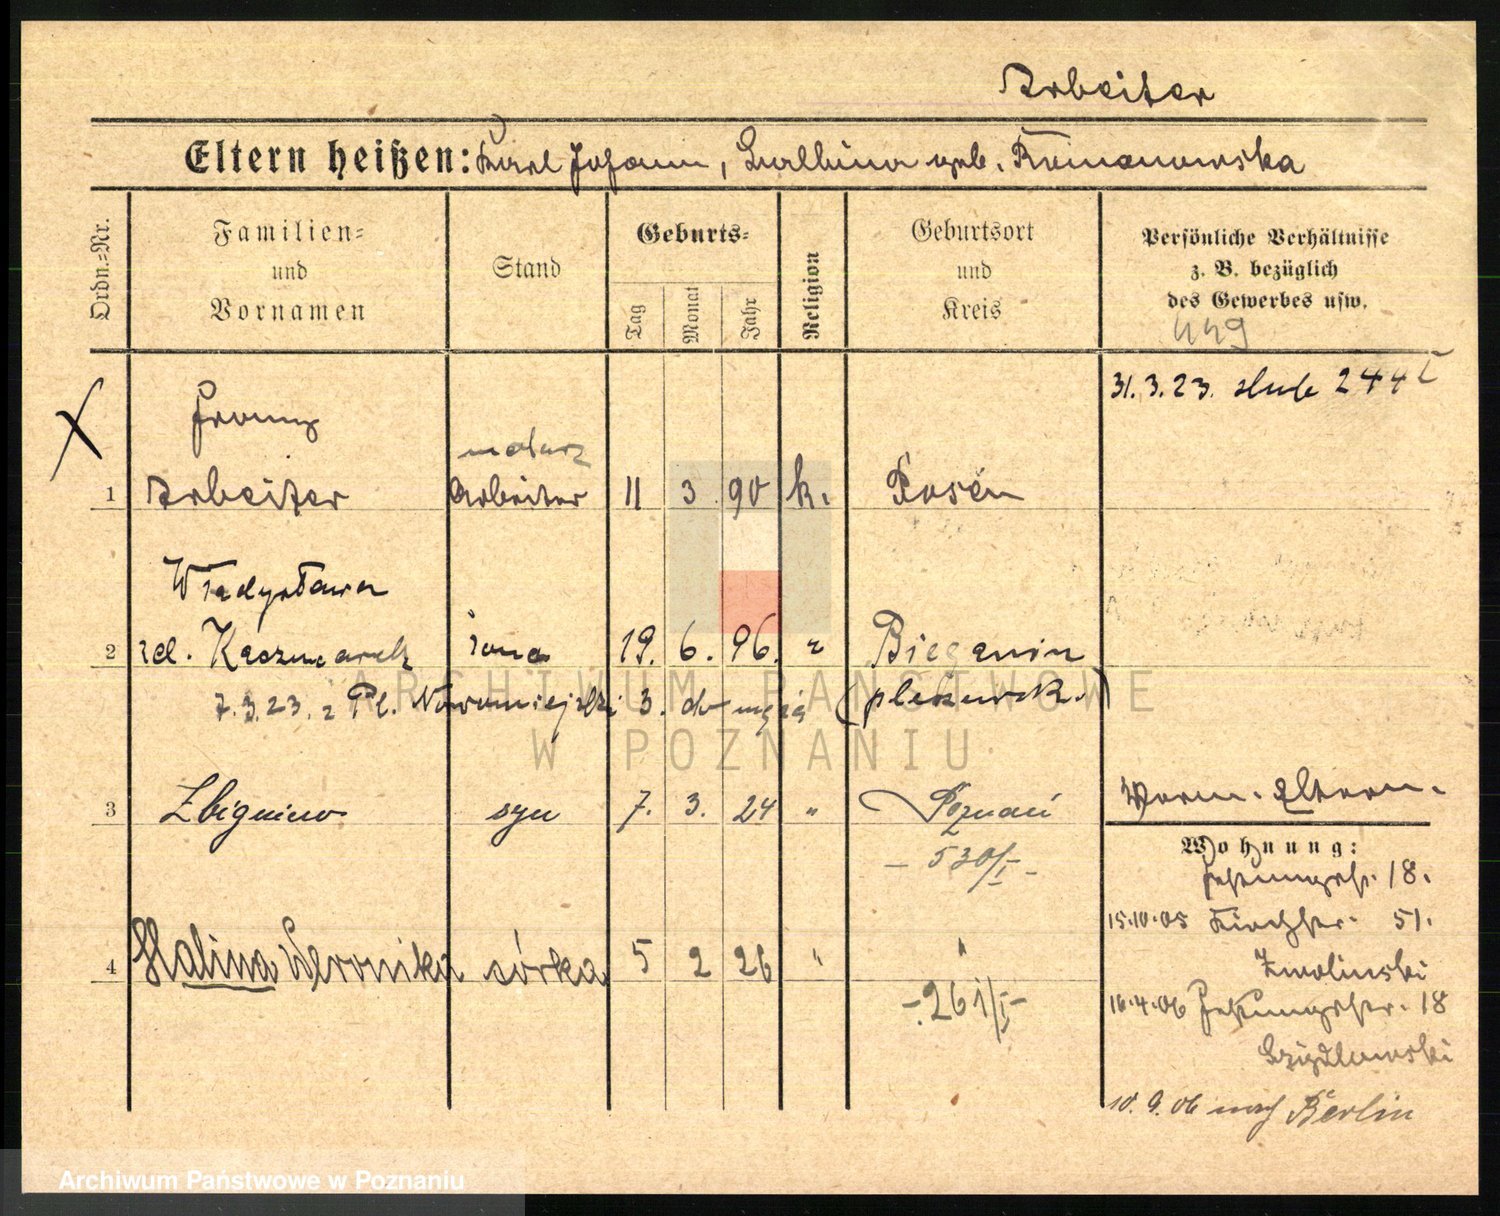 Arbeiter
Eltern heißen: Karl Johann, Balbina geb. Romanowska
Ordn.-Nr.
Familien-
und
Vornamen
Stand
Geburts-
Tag
Monat
Jahr
Religion
Geburtsort
und
Kreis
Persönliche Verhältnisse
z. B. bezüglich
des Gewerbes usw.
449
31.3.23. 244
Franz
malarz
1 Arbeiter Arbeiter 11 3 90 k. Posen
Władysława
2 zd. Kaczmarek żona 19. 6. 96. " Bieganin
7.3.23. z Pl. Nowomiejski 3. do męża (pleszewsk.)
3 Zbigniew syn 7. 3. 24 " Poznań
- 530/I -
Vorm. Eltern.
Wohnung:
18.
15.10.05 Kirchstr. 51.
Zwolinski
4 Halina Weronika córka 5 2 26 " "
- 261/I -
16.4.06 18
Szydlowski
10.9.06 nach Berlin
ARCHIWUM PAŃSTWOWE
W POZNANIU
Archiwum Państwowe w Poznaniu